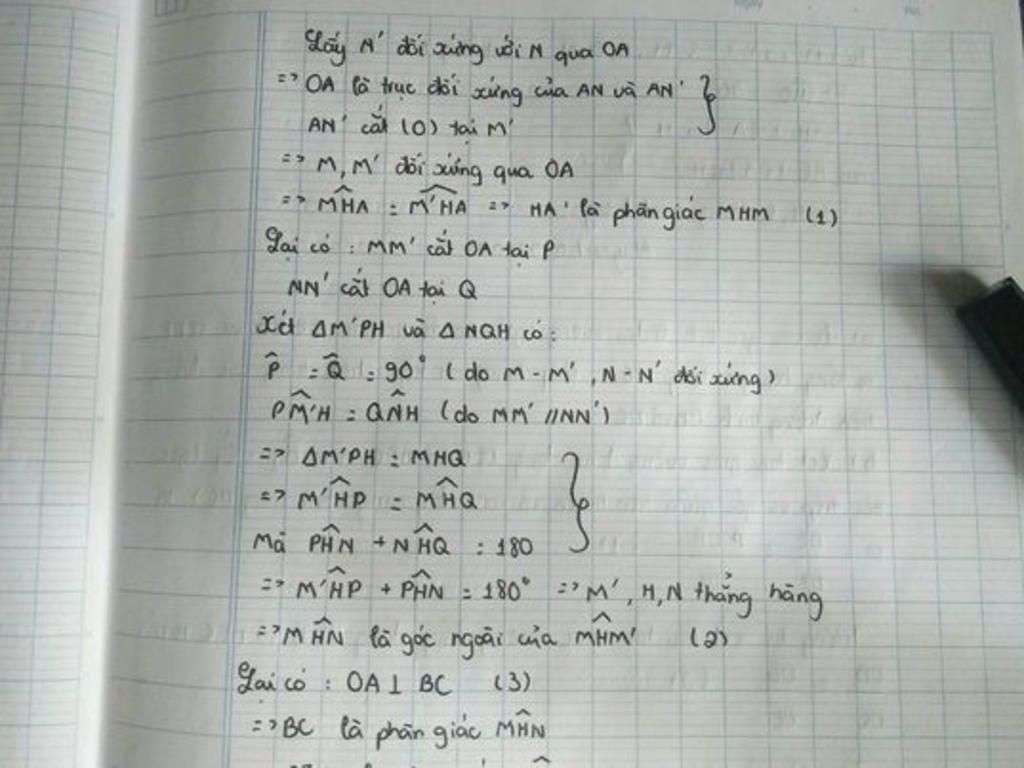 Lấy N' đối xứng với N qua OA
=> OA là trục đối xứng của AN và AN'
AN' cắt (O) tại M'
=> M, M' đối xứng qua OA
=> MĤA = M'ĤA => HA' là phân giác MHM (1)
Lại có : MM' cắt OA tại P
NN' cắt OA tại Q
Xét ΔM'PH và Δ NQH có:
P̂ = Q̂ = 90° (do M - M', N - N' đối xứng)
PM̂'H = QN̂H (do MM' // NN')
=> ΔM'PH = MHQ
=> M'ĤP = MĤQ
Mà PĤN + NĤQ = 180
=> M'ĤP + PĤN = 180° => M', H, N thẳng hàng
=> MĤN là góc ngoài của MĤM' (2)
Lại có : OA ⊥ BC (3)
=> BC là phân giác MĤN